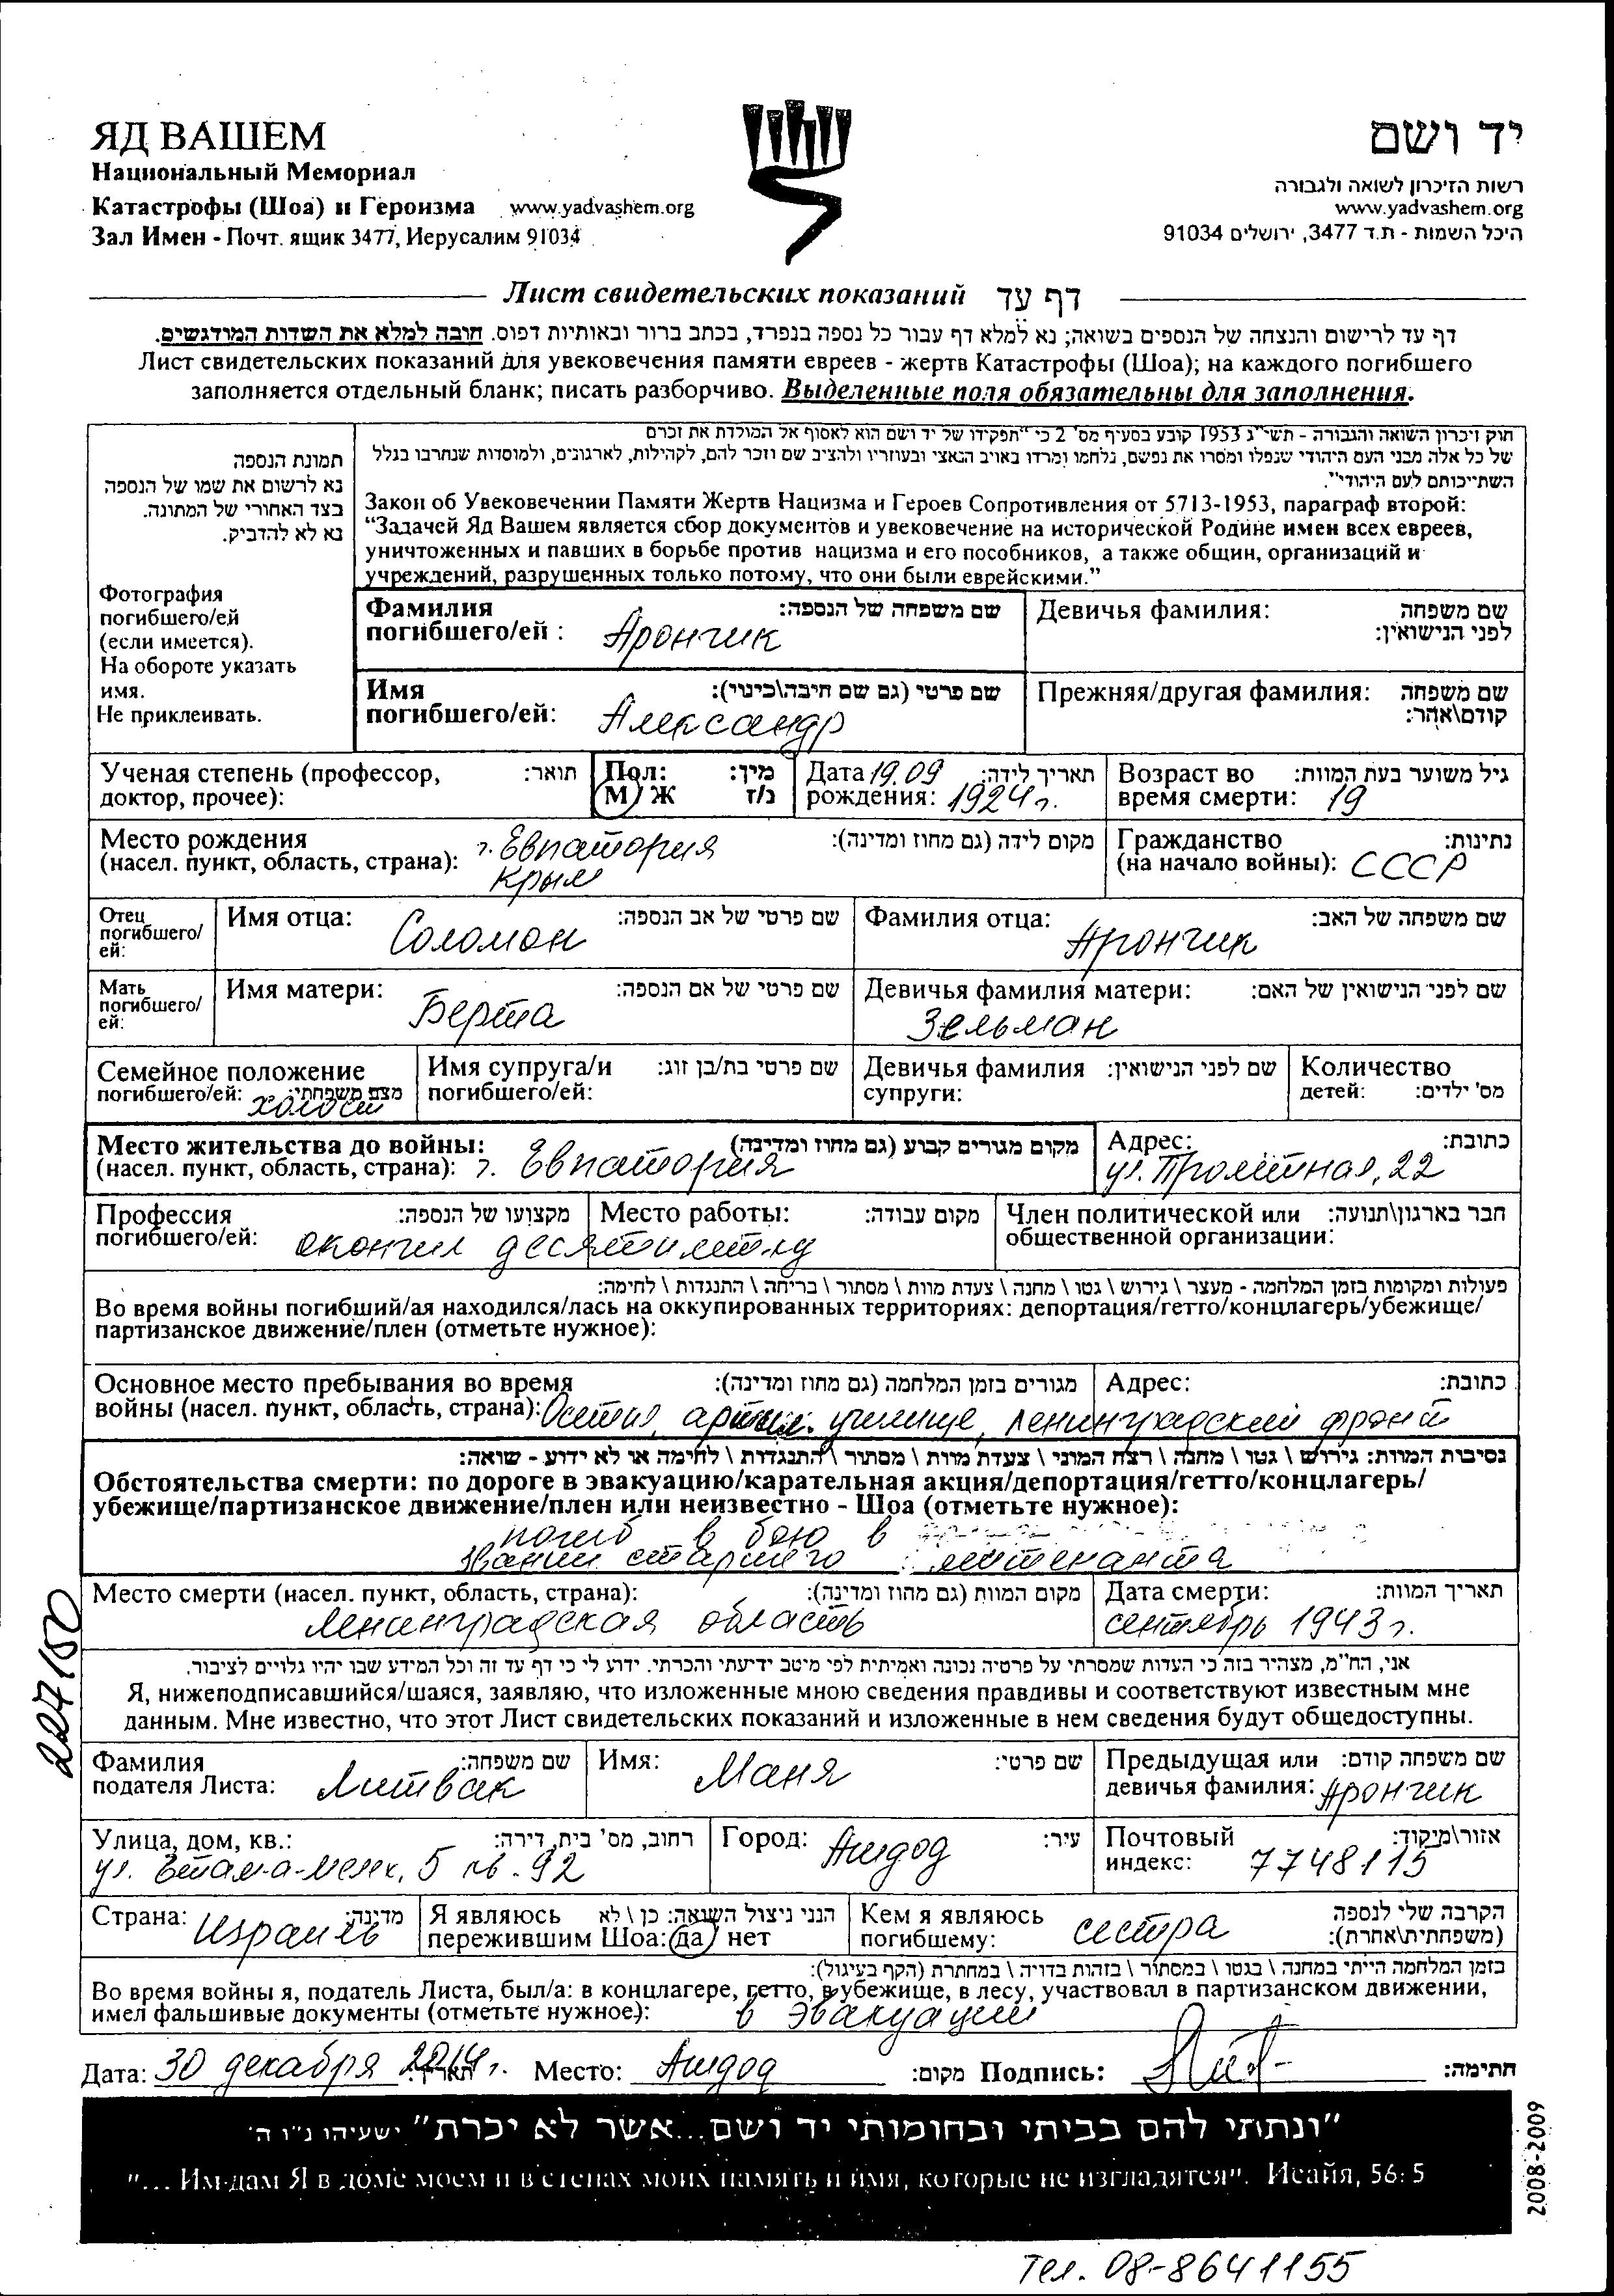 ЯД ВАШЕМ
Национальный Мемориал
Катастрофы (Шоа) и Героизма www.yadvashem.org
Зал Имен - Почт. ящик 3477, Иерусалим 91034
יד ושם
רשות הזיכרון לשואה ולגבורה
www.yadvashem.org
היכל השמות - ת.ד 3477, ירושלים 91034
Лист свидетельских показаний דף עד
דף עד לרישום והנצחה של הנספים בשואה; נא למלא דף עבור כל נספה בנפרד, בכתב ברור ובאותיות דפוס. חובה למלא את השדות המודגשים.
Лист свидетельских показаний для увековечения памяти евреев - жертв Катастрофы (Шоа); на каждого погибшего
заполняется отдельный бланк; писать разборчиво. Выделенные поля обязательны для заполнения.
תמונת הנספה
נא לרשום את שמו של הנספה
בצד האחורי של המתונה.
נא לא להדביק.
Фотография
погибшего/ей
(если имеется).
На обороте указать
имя.
Не приклеивать.
חוק זיכרון השואה והגבורה - תשי"ג 1953 קובע בסעיף מס' 2 כי "תפקידו של יד ושם הוא לאסוף אל המולדת את זכרם
של כל אלה מבני העם היהודי שנפלו ומסרו את נפשם, נלחמו ומרדו באויב הנאצי ובעוזריו ולהציב שם וזכר להם, לקהילות, לארגונים, ולמוסדות שנחרבו בגלל
השתייכותם לעם היהודי".
Закон об Увековечении Памяти Жертв Нацизма и Героев Сопротивления от 5713-1953, параграф второй:
“Задачей Яд Вашем является сбор документов и увековечение на исторической Родине имен всех евреев,
уничтоженных и павших в борьбе против нацизма и его пособников, а также общин, организаций и
учреждений, разрушенных только потому, что они были еврейскими.”
Фамилия שם משפחה של הנספה:
погибшего/ей : Арончик
Девичья фамилия: שם משפחה
לפני הנישואין:
Имя שם פרטי (גם שם חיבה\כינוי):
погибшего/ей: Александр
Прежняя/другая фамилия: שם משפחה
קודם\אחר:
Ученая степень (профессор, תואר:
доктор, прочее):
Пол: מין:
М/Ж ז/נ
Дата 19.09 תאריך לידה:
рождения: 1924 г.
Возраст во גיל משוער בעת המוות:
время смерти: 19
Место рождения מקום לידה (גם מחוז ומדינה):
(насел. пункт, область, страна): г. Евпатория
Крым
Гражданство נתינות:
(на начало войны): СССР
Отец
погибшего/
ей:
Имя отца: Соломон שם פרטי של אב הנספה:
Фамилия отца: Арончик שם משפחה של האב:
Мать
погибшего/
ей:
Имя матери: Берта שם פרטי של אם הנספה:
Девичья фамилия матери: Зельман שם לפני הנישואין של האם:
Семейное положение
погибшего/ей: холост מצב משפחתי:
Имя супруга/и שם פרטי בת/בן זוג:
погибшего/ей:
Девичья фамилия שם לפני הנישואין:
супруги:
Количество
детей: מס' ילדים:
Место жительства до войны: מקום מגורים קבוע (גם מחוז ומדינה)
(насел. пункт, область, страна): г. Евпатория
Адрес: כתובת:
22
Профессия מקצועו של הנספה:
погибшего/ей: окончил десятилетку
Место работы: מקום עבודה:
Член политической или חבר בארגון\תנועה:
общественной организации:
פעולות ומקומות בזמן המלחמה - מעצר \ גירוש \ גטו \ מחנה \ צעדת מוות \ מסתור \ בריחה \ התנגדות \ לחימה:
Во время войны погибший/ая находился/лась на оккупированных территориях: депортация/гетто/концлагерь/убежище/
партизанское движение/плен (отметьте нужное):
Основное место пребывания во время מגורים בזמן המלחמה (גם מחוז ומדינה):
войны (насел. пункт, область, страна): училище, Ленинградский фронт
Адрес: כתובת:
נסיבות המוות: גירוש \ גטו \ מחנה \ רצח המוני \ צעדת מוות \ מסתור \ התנגדות \ לחימה או לא ידוע - שואה:
Обстоятельства смерти: по дороге в эвакуацию/карательная акция/депортация/гетто/концлагерь/
убежище/партизанское движение/плен или неизвестно - Шоа (отметьте нужное):
погиб в бою в
звании старшего лейтенанта
Место смерти (насел. пункт, область, страна): מקום המוות (גם מחוז ומדינה):
Ленинградская область
Дата смерти: תאריך המוות:
сентябрь 1943 г.
אני, הח"מ, מצהיר בזה כי העדות שמסרתי על פרטיה נכונה ואמיתית לפי מיטב ידיעתי והכרתי. ידוע לי כי דף עד זה וכל המידע שבו יהיו גלויים לציבור.
Я, нижеподписавшийся/шаяся, заявляю, что изложенные мною сведения правдивы и соответствуют известным мне
данным. Мне известно, что этот Лист свидетельских показаний и изложенные в нем сведения будут общедоступны.
Фамилия שם משפחה:
подателя Листа: Литвак
Имя: Маня שם פרטי:
Предыдущая или שם משפחה קודם:
девичья фамилия: Арончик
Улица, дом, кв.: רחוב, מס' בית, דירה:
ул. 5 кв. 92
Город: Ашдод עיר:
Почтовый אזור\מיקוד:
индекс: 7748115
Страна: Израиль מדינה:
Я являюсь הנני ניצול השואה: כן \ לא
пережившим Шоа: да нет
Кем я являюсь הקרבה שלי לנספה
погибшему: сестра (משפחתית\אחרת):
בזמן המלחמה הייתי במחנה \ בגטו \ במסתור \ בזהות בדויה \ במחתרת (הקף בעיגול):
Во время войны я, податель Листа, был/а: в концлагере, гетто, в убежище, в лесу, участвовал в партизанском движении,
имел фальшивые документы (отметьте нужное): в эвакуации
Дата: 30 декабря 2014 г. תאריך: Место: Ашдод מקום: Подпись: חתימה:
"ונתתי להם בביתי ובחומותי יד ושם...אשר לא יכרת" ישעיהו נ"ו ה'
"... Им дам Я в доме моем и в стенах моих память и имя, которые не изгладятся". Исайя, 56: 5
227150
2008-2009
Тел. 08-8641155